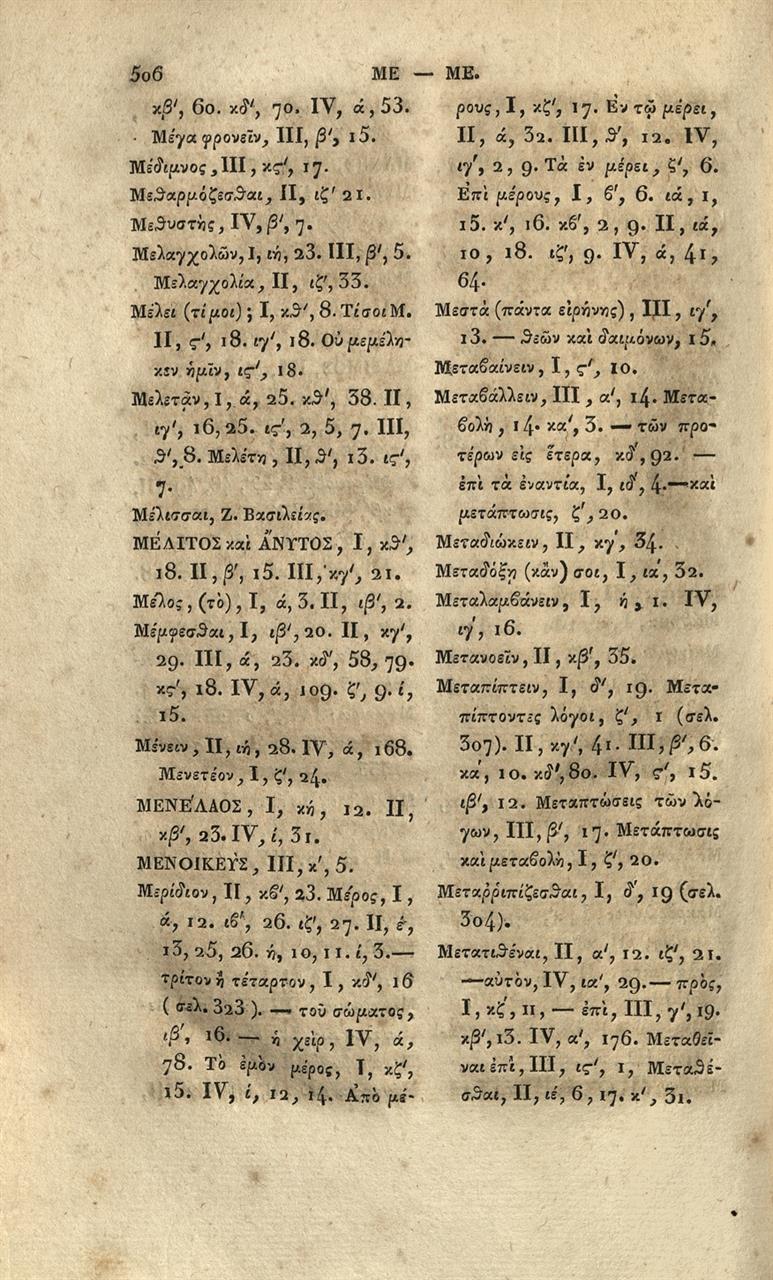 506 ΜΕ — ΜΕ.
κβ′, 60. κδ′, 70. IV, ά, 53.
Μέγα φρονεῖν, III, β′, 15.
Μέδιμνος, III, κϛ′, 17.
Μεθαρμόζεσθαι, II, ιζ′ 21.
Μεθυστὴς, IV, β′, 7.
Μελαγχολῶν, I, ιή, 23. III, β′, 5.
Μελαγχολία, II, ιζ′, 33.
Μέλει (τί μοι) ; I, κθ′, 8. Τί σοι Μ.
II, ϛ′, 18. ιγ′, 18. Οὐ μεμέλη-
κεν ἡμῖν, ιϛ′, 18.
Μελετᾶν, I, ά, 25. κθ′, 38. II,
ιγ′, 16, 25. ιϛ′, 2, 5, 7. III,
θ′, 8. Μελέτη, II, θ′, 13. ιϛ′,
7.
Μέλισσαι, Ζ. Βασιλείας.
ΜΕΛΙΤΟΣ καὶ ἌΝΥΤΟΣ, I, κθ′,
18. II, β′, 15. III, κγ′, 21.
Μέλος, (τὸ), I, ά, 3. II, ιβ′, 2.
Μέμφεσθαι, I, ιβ′, 20. II, κγ′,
29. III, ά, 23. κδ′, 58, 79.
κϛ′, 18. IV, ά, 109. ζ′, 9. ί,
15.
Μένειν, II, ιή, 28. IV, ά, 168.
Μενετέον, I, ζ′, 24.
ΜΕΝΕΛΑΟΣ, I, κή, 12. II,
κβ′, 23. IV, ί, 31.
ΜΕΝΟΙΚΕῪΣ, III, κ′, 5.
Μερίδιον, II, κβ′, 23. Μέρος, I,
ά, 12. ιβ′, 26. ιζ′, 27. II, έ,
13, 25, 26. ή, 10, 11. ί, 3.—
τρίτον ἢ τέταρτον, I, κδ′, 16
(σελ. 323). — τοῦ σώματος,
ιβ′, 16. — ἡ χεὶρ, IV, ά,
78. Τὸ ἐμὸν μέρος, I, κζ′,
15. IV, ί, 12, 14. Ἀπὸ μέ-
ρους, I, κζ′, 17. Ἐν τῷ μέρει,
II, ά, 32. III, θ′, 12. IV,
ιγ′, 2, 9. Τὰ ἐν μέρει, ζ′, 6.
Ἐπὶ μέρους, I, β′, 6. ιά, 1,
15. κ′, 16. κβ′, 2, 9. II, ιά,
10, 18. ιζ′, 9. IV, ά, 41,
64.
Μεστὰ (πάντα εἰρήνης), III, ιγ′,
13. — θεῶν καὶ δαιμόνων, 15.
Μεταβαίνειν, I, ϛ′, 10.
Μεταβάλλειν, III, α′, 14. Μετα-
βολὴ, 14. κα′, 3. — τῶν προ-
τέρων εἰς ἕτερα, κδ′, 92. —
ἐπὶ τὰ ἐναντία, I, ιδ′, 4.—καὶ
μετάπτωσις, ζ′, 20.
Μεταδιώκειν, II, κγ′, 34.
Μεταδόξῃ (κἂν) σοι, I, ιά, 32.
Μεταλαμβάνειν, I, ή, 1. IV,
ιγ′, 16.
Μετανοεῖν, II, κβ′, 35.
Μεταπίπτειν, I, δ′, 19. Μετα-
πίπτοντες λόγοι, ζ′, 1 (σελ.
307). II, κγ′, 41. III, β′, 6.
κά, 10. κδ′, 80. IV, ϛ′, 15.
ιβ′, 12. Μεταπτώσεις τῶν λό-
γων, III, β′, 17. Μετάπτωσις
καὶ μεταβολὴ, I, ζ′, 20.
Μεταῤῥιπίζεσθαι, I, δ′, 19 (σελ.
304).
Μετατιθέναι, II, α′, 12. ιζ′, 21.
—αὑτὸν, IV, ια′, 29.— πρὸς,
I, κζ′, 11, — ἐπὶ, III, γ′, 19.
κβ′, 13. IV, α′, 176. Μεταθεῖ-
ναι ἐπὶ, III, ιϛ′, 1, Μεταθέ-
σθαι, II, ιέ, 6, 17. κ′, 31.